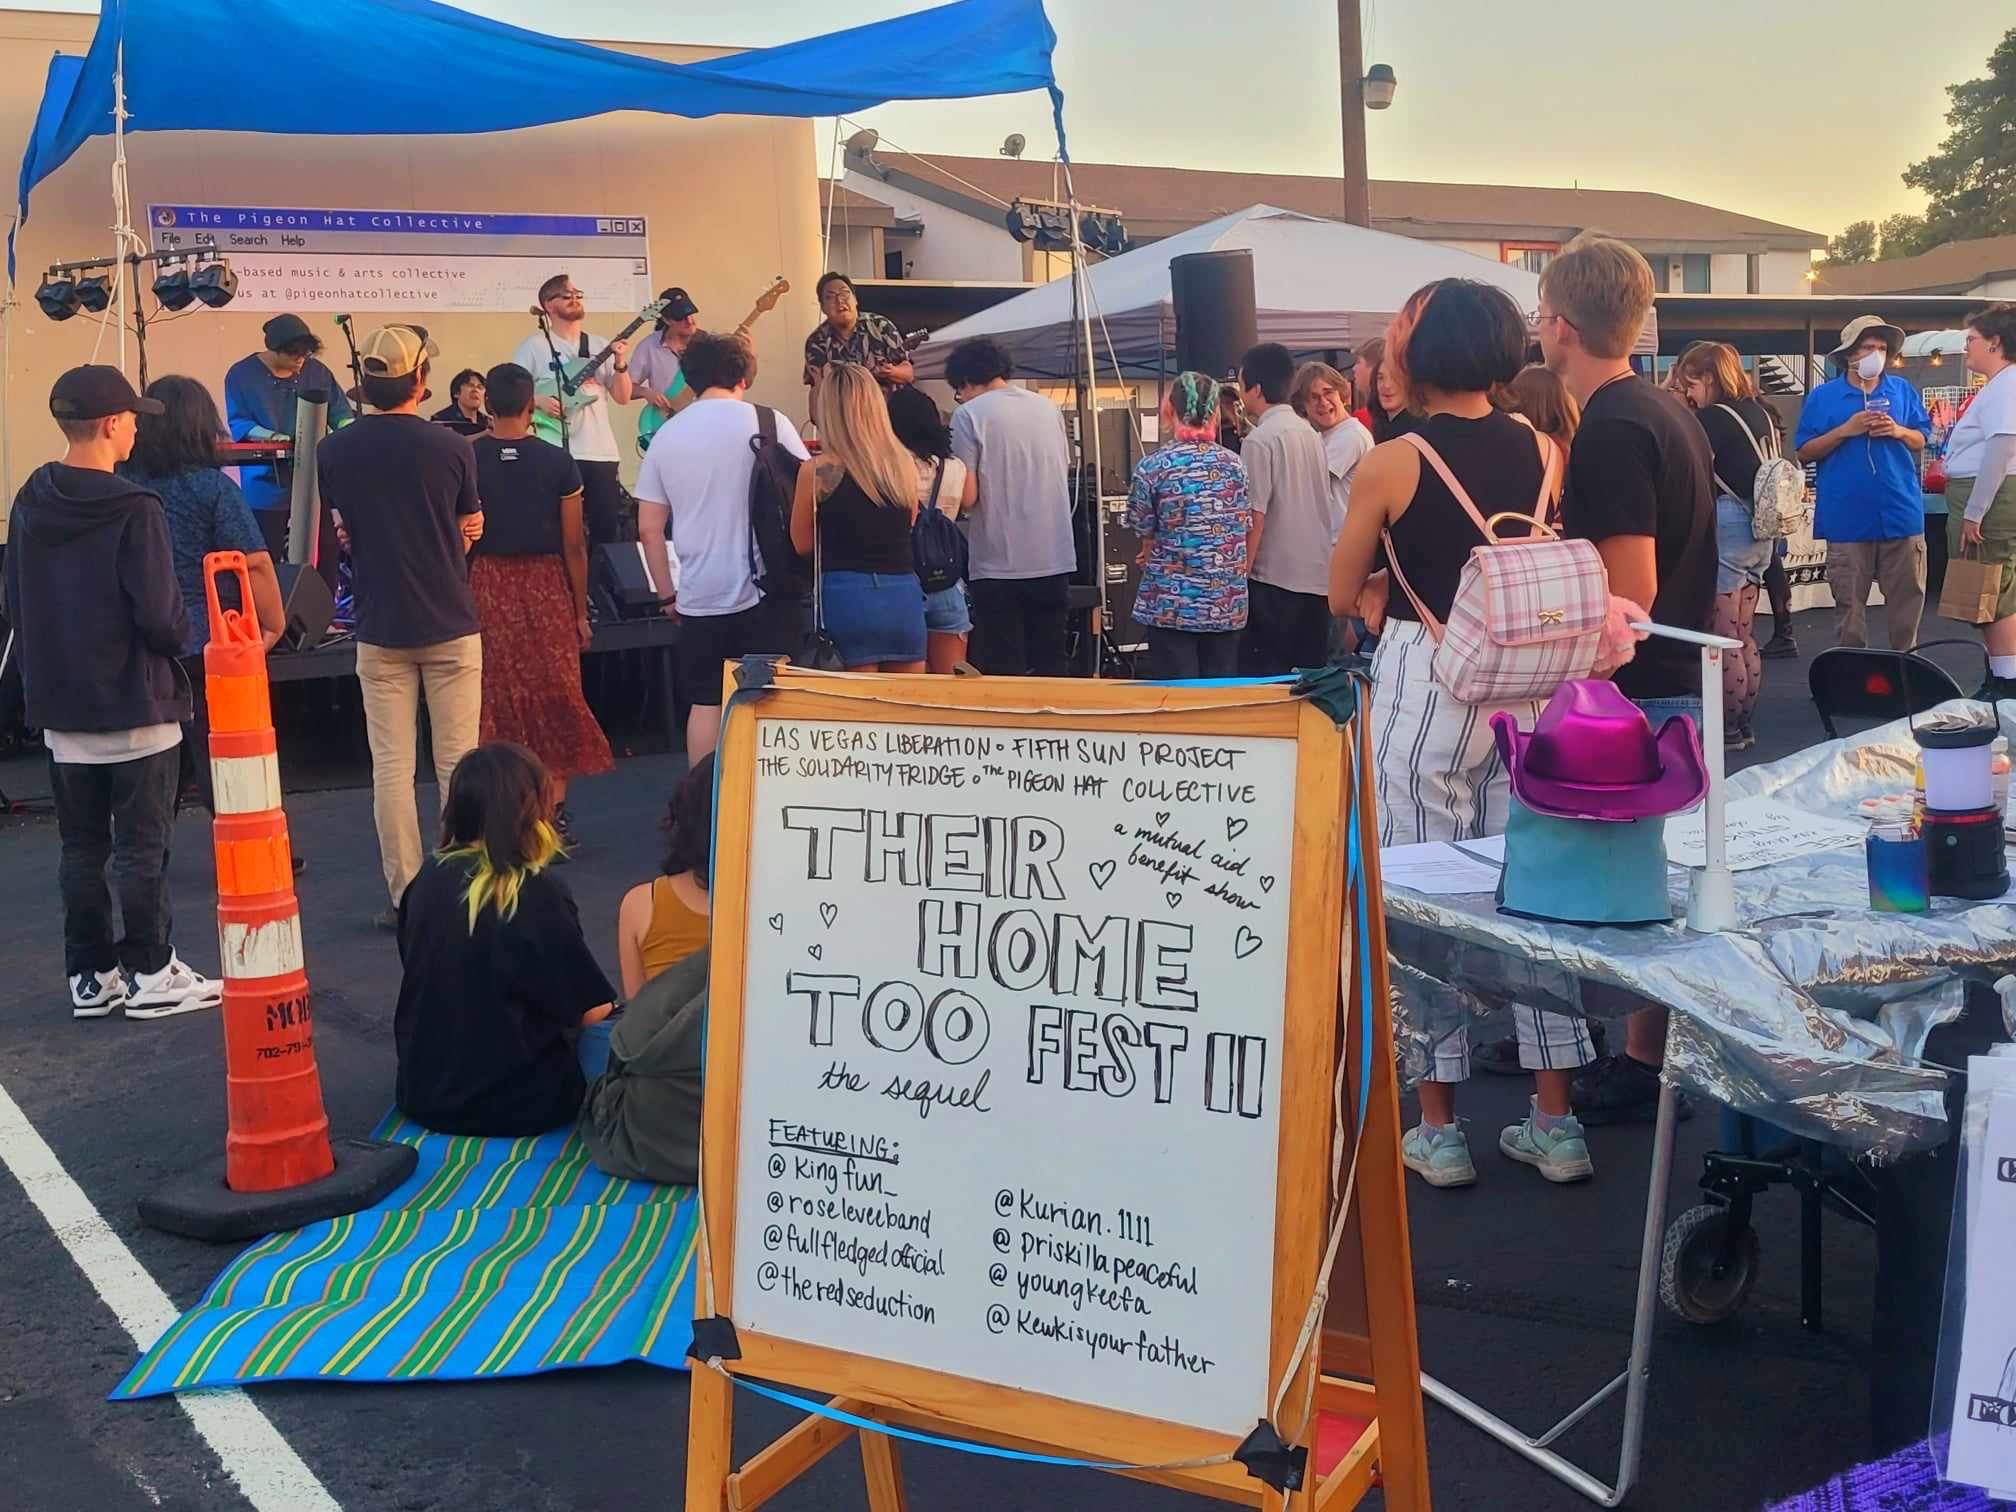 The Pigeon Hat Collective
File Edit Search Help
-based music & arts collective
us at @pigeonhatcollective
LAS VEGAS LIBERATION • FIFTH SUN PROJECT
THE SOLIDARITY FRIDGE • The PIGEON HAT COLLECTIVE
THEIR
a mutual aid
benefit show
HOME
TOO FEST II
the sequel
FEATURING:
@kingfun_
@roseleveeband
@fullfledgedofficial
@theredseduction
@kurian.1111
@priskillapeaceful
@youngkeefa
@kewkisyourfather
702-79